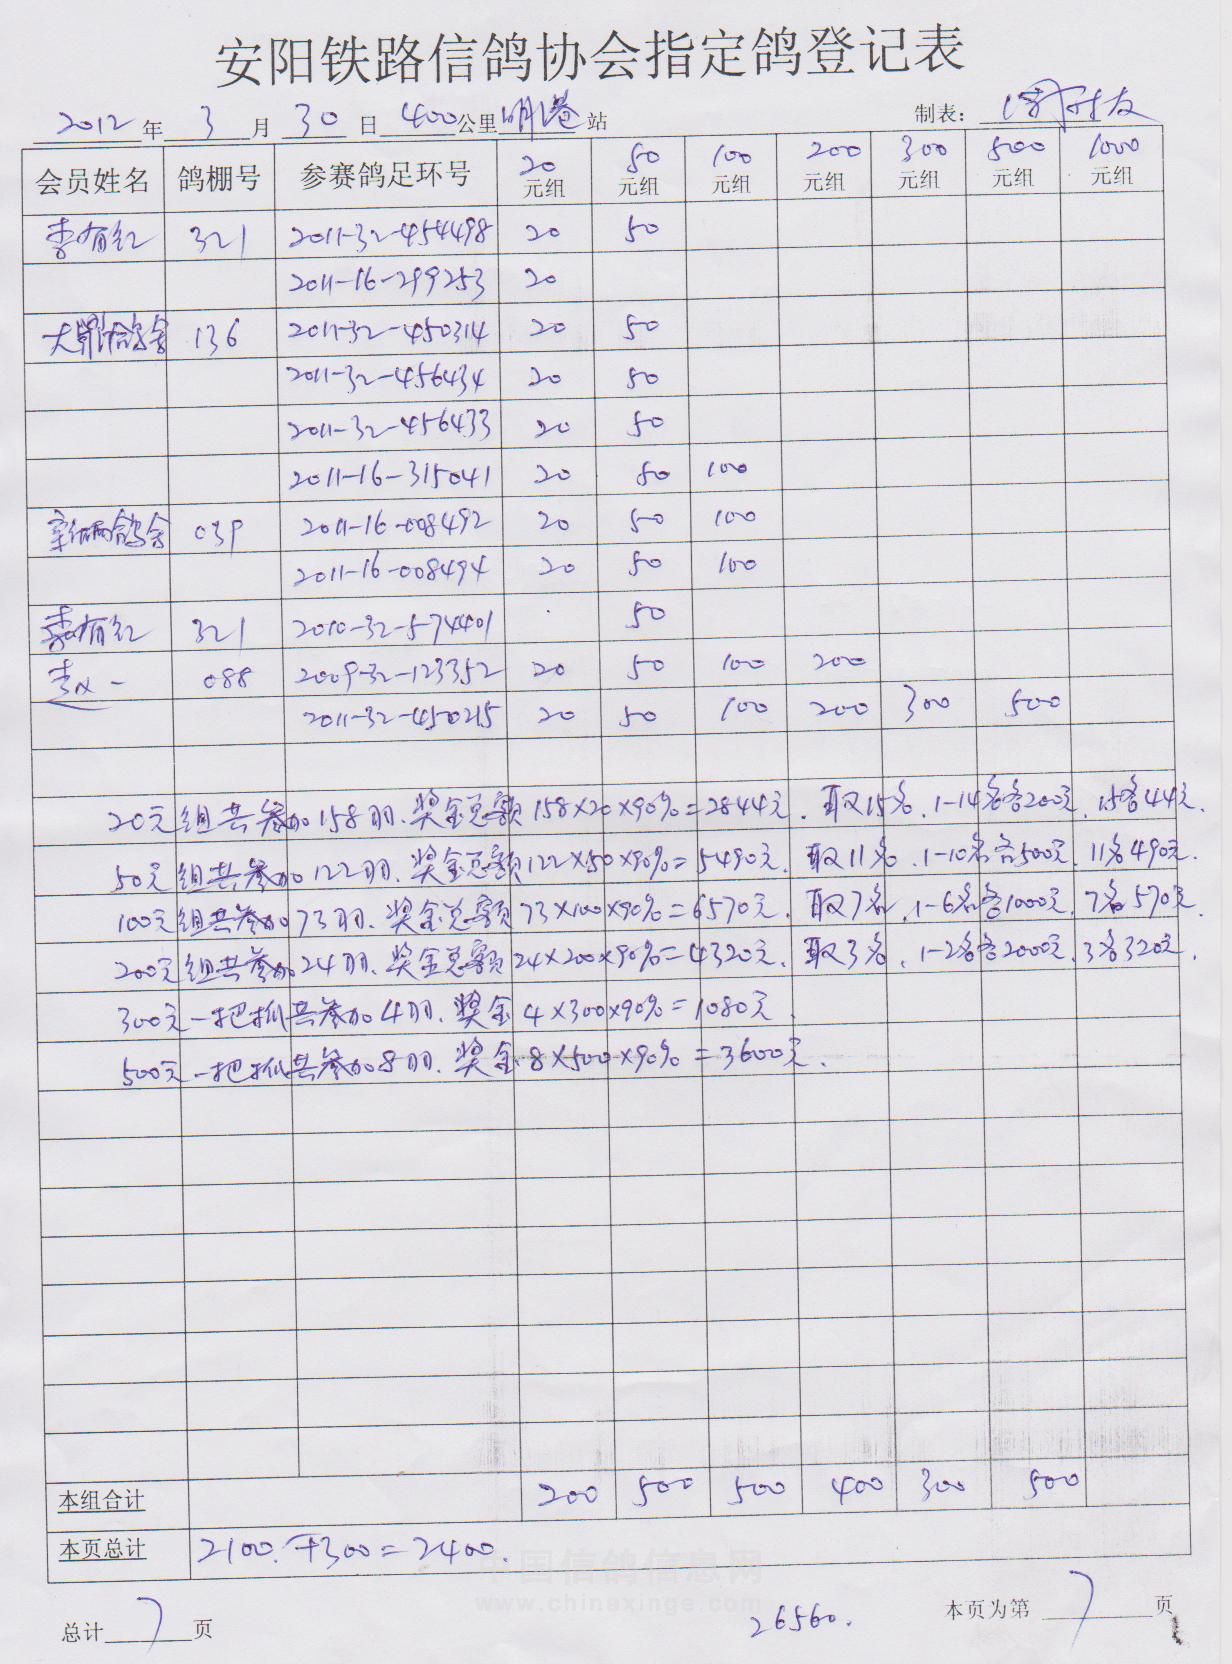 安阳铁路信鸽协会指定鸽登记表
2012年 3月 30日 400公里明港站 制表：
会员姓名 鸽棚号 参赛鸽足环号 20元组 50元组 100元组 200元组 300元组 500元组 1000元组
李有红 321 2011-32-454498 20 50
2011-16-299253 20
大鼎鸽舍 136 2011-32-450314 20 50
2011-32-456434 20 50
2011-32-456433 20 50
2011-16-315041 20 50 100
鸽舍 039 2011-16-008492 20 50 100
2011-16-008494 20 50 100
李有红 321 2010-32-574401 50
088 2009-32-123352 20 50 100 200
2011-32-450215 20 50 100 200 300 500
20元组共参加158羽.奖金总额158×20×90%=2844元.取15名.1-14名各200元.15名44元.
50元组共参加122羽.奖金总额122×50×90%=5490元.取11名.1-10名各500元.11名490元.
100元组共参加73羽.奖金总额73×100×90%=6570元.取7名.1-6名各1000元.7名570元.
200元组共参加24羽.奖金总额24×200×90%=4320元.取3名.1-2名各2000元.3名320元.
300元一把抓共参加4羽.奖金4×300×90%=1080元.
500元一把抓共参加8羽.奖金8×500×90%=3600元.
本组合计 200 500 500 400 300 500
本页总计 2100.+300=2400.
中国信鸽信息网
www.chinaxinge.com
总计 7 页 26560. 本页为第 7 页